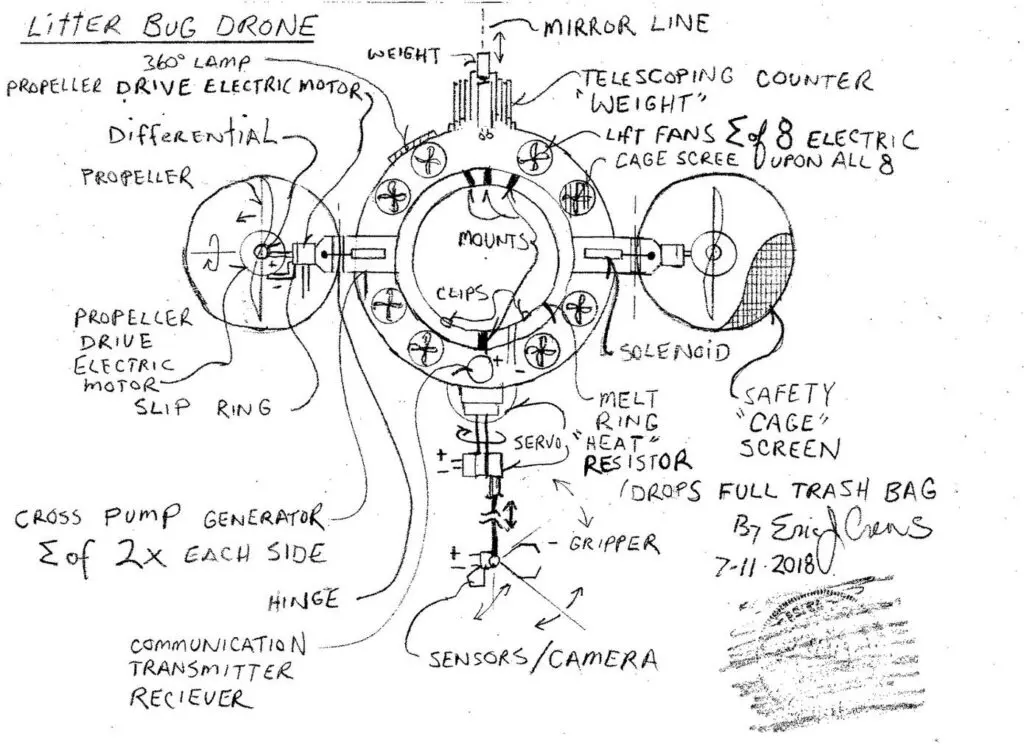 LITTER BUG DRONE
MIRROR LINE
WEIGHT
360° LAMP
PROPELLER DRIVE ELECTRIC MOTOR
TELESCOPING COUNTER
"WEIGHT"
DIFFERENTIAL
LIFT FANS Σ of 8 ELECTRIC
CAGE SCREE UPON ALL 8
PROPELLER
MOUNTS
+
-
CLIPS
PROPELLER
DRIVE
ELECTRIC
MOTOR
SLIP RING
SOLENOID
+
-
SAFETY
"CAGE"
SCREEN
MELT
RING
"HEAT"
RESISTOR
SERVO
+
-
/DROPS FULL TRASH BAG
CROSS PUMP GENERATOR
Σ of 2x EACH SIDE
By
7-11-2018
GRIPPER
+
-
HINGE
COMMUNICATION
TRANSMITTER
RECIEVER
SENSORS/CAMERA